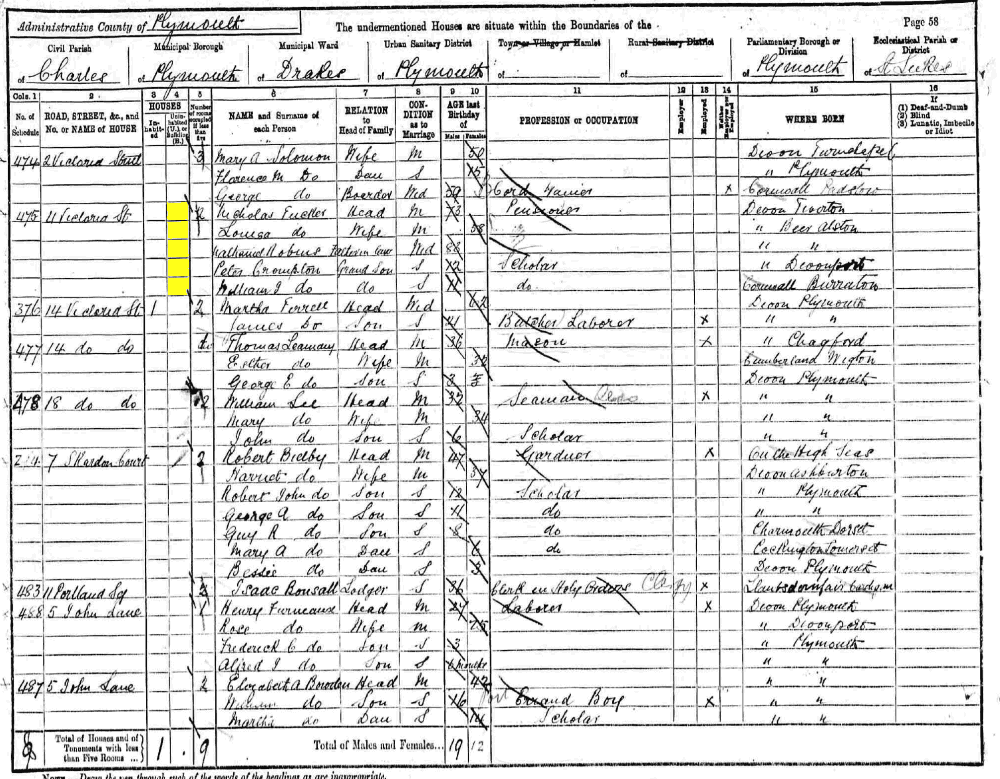 Administrative County of Plymouth The undermentioned Houses are situate within the Boundaries of the Page 58
Civil Parish Municipal Borough Municipal Ward Urban Sanitary District Town or Village or Hamlet Rural Sanitary District Parliamentary Borough or Division Ecclesiastical Parish or District
of Charles of Plymouth of Drakes of Plymouth of of of Plymouth of St Lukes
Cols. 1 2 3 4 5 6 7 8 9 10 11 12 13 14 15 16
No. of Schedule ROAD, STREET, &c., and No. or NAME of HOUSE HOUSES Inhabited Uninhabited (U.) or Building (B.) Number of rooms occupied if less than five NAME and Surname of each Person RELATION to Head of Family CONDITION as to Marriage AGE last Birthday of Males Females PROFESSION or OCCUPATION Employer Employed Neither Employer nor Employed WHERE BORN If (1) Deaf-and-Dumb (2) Blind (3) Lunatic, Imbecile or Idiot
474 2 Victoria Street 3 Mary A Solomon Wife M 50 Devon
Florence M Do Dau S 15 " Plymouth
George do Boarder Wed 59 x Cornwall Padstow
475 4 Victoria St. 2 Nicholas Tucker Head M 73 Pensioner Devon Tiverton
Louisa do Wife M 58 " Beer Alston
Nathaniel Robins Father in law Wed 86 " "
Peter Crompton Grand Son S 12 Scholar " Devonport
William J do do S 11 do Cornwall Burraton
376 14 Victoria St 1 2 Martha Ferrell Head Wed 62 Devon Plymouth
James Do Son S 21 Butcher Laborer x " "
477 14 do do Thomas Leaman Head M 36 Mason x " Chagford
Esther do Wife M 32 Cumberland Wigton
George E do Son S 3 Devon Plymouth
478 18 do do 2 William Lee Head M 32 Seaman x " "
Mary do Wife M 34 " "
John do Son S 6 Scholar " "
7 Skardon Court 2 Robert Bidby Head M 47 Gardner x On the High Seas
Harriet do Wife M 37 Devon Ashburton
Robert John do Son S 12 Scholar " Plymouth
George A do Son S 11 do " "
Guy R do Son S 8 do Charmouth Dorset
Mary A do Dau S 6 do Cockington Somerset
Bessie do Dau S Devon Plymouth
483 11 Portland Sq 2 Isaac Bonsall Lodger S 36 Clerk in Holy Orders x
488 5 John Lane 1 Henry Furneaux Head M 27 Laborer x Devon Plymouth
Rose do Wife M 25 " Devonport
Frederick C do Son S 3 " Plymouth
Alfred J do Son S 6 months " "
487 5 John Lane 2 Elizabeth A Bowden Head M 42 " "
William do Son S 16 Errand Boy x " "
Martha do Dau S 14 Scholar " "
8 Total of Houses and of Tenements with less than Five Rooms ... 1 . 9 Total of Males and Females... 19 12
NOTE.—Draw the pen through such of the words of the headings as are inappropriate.